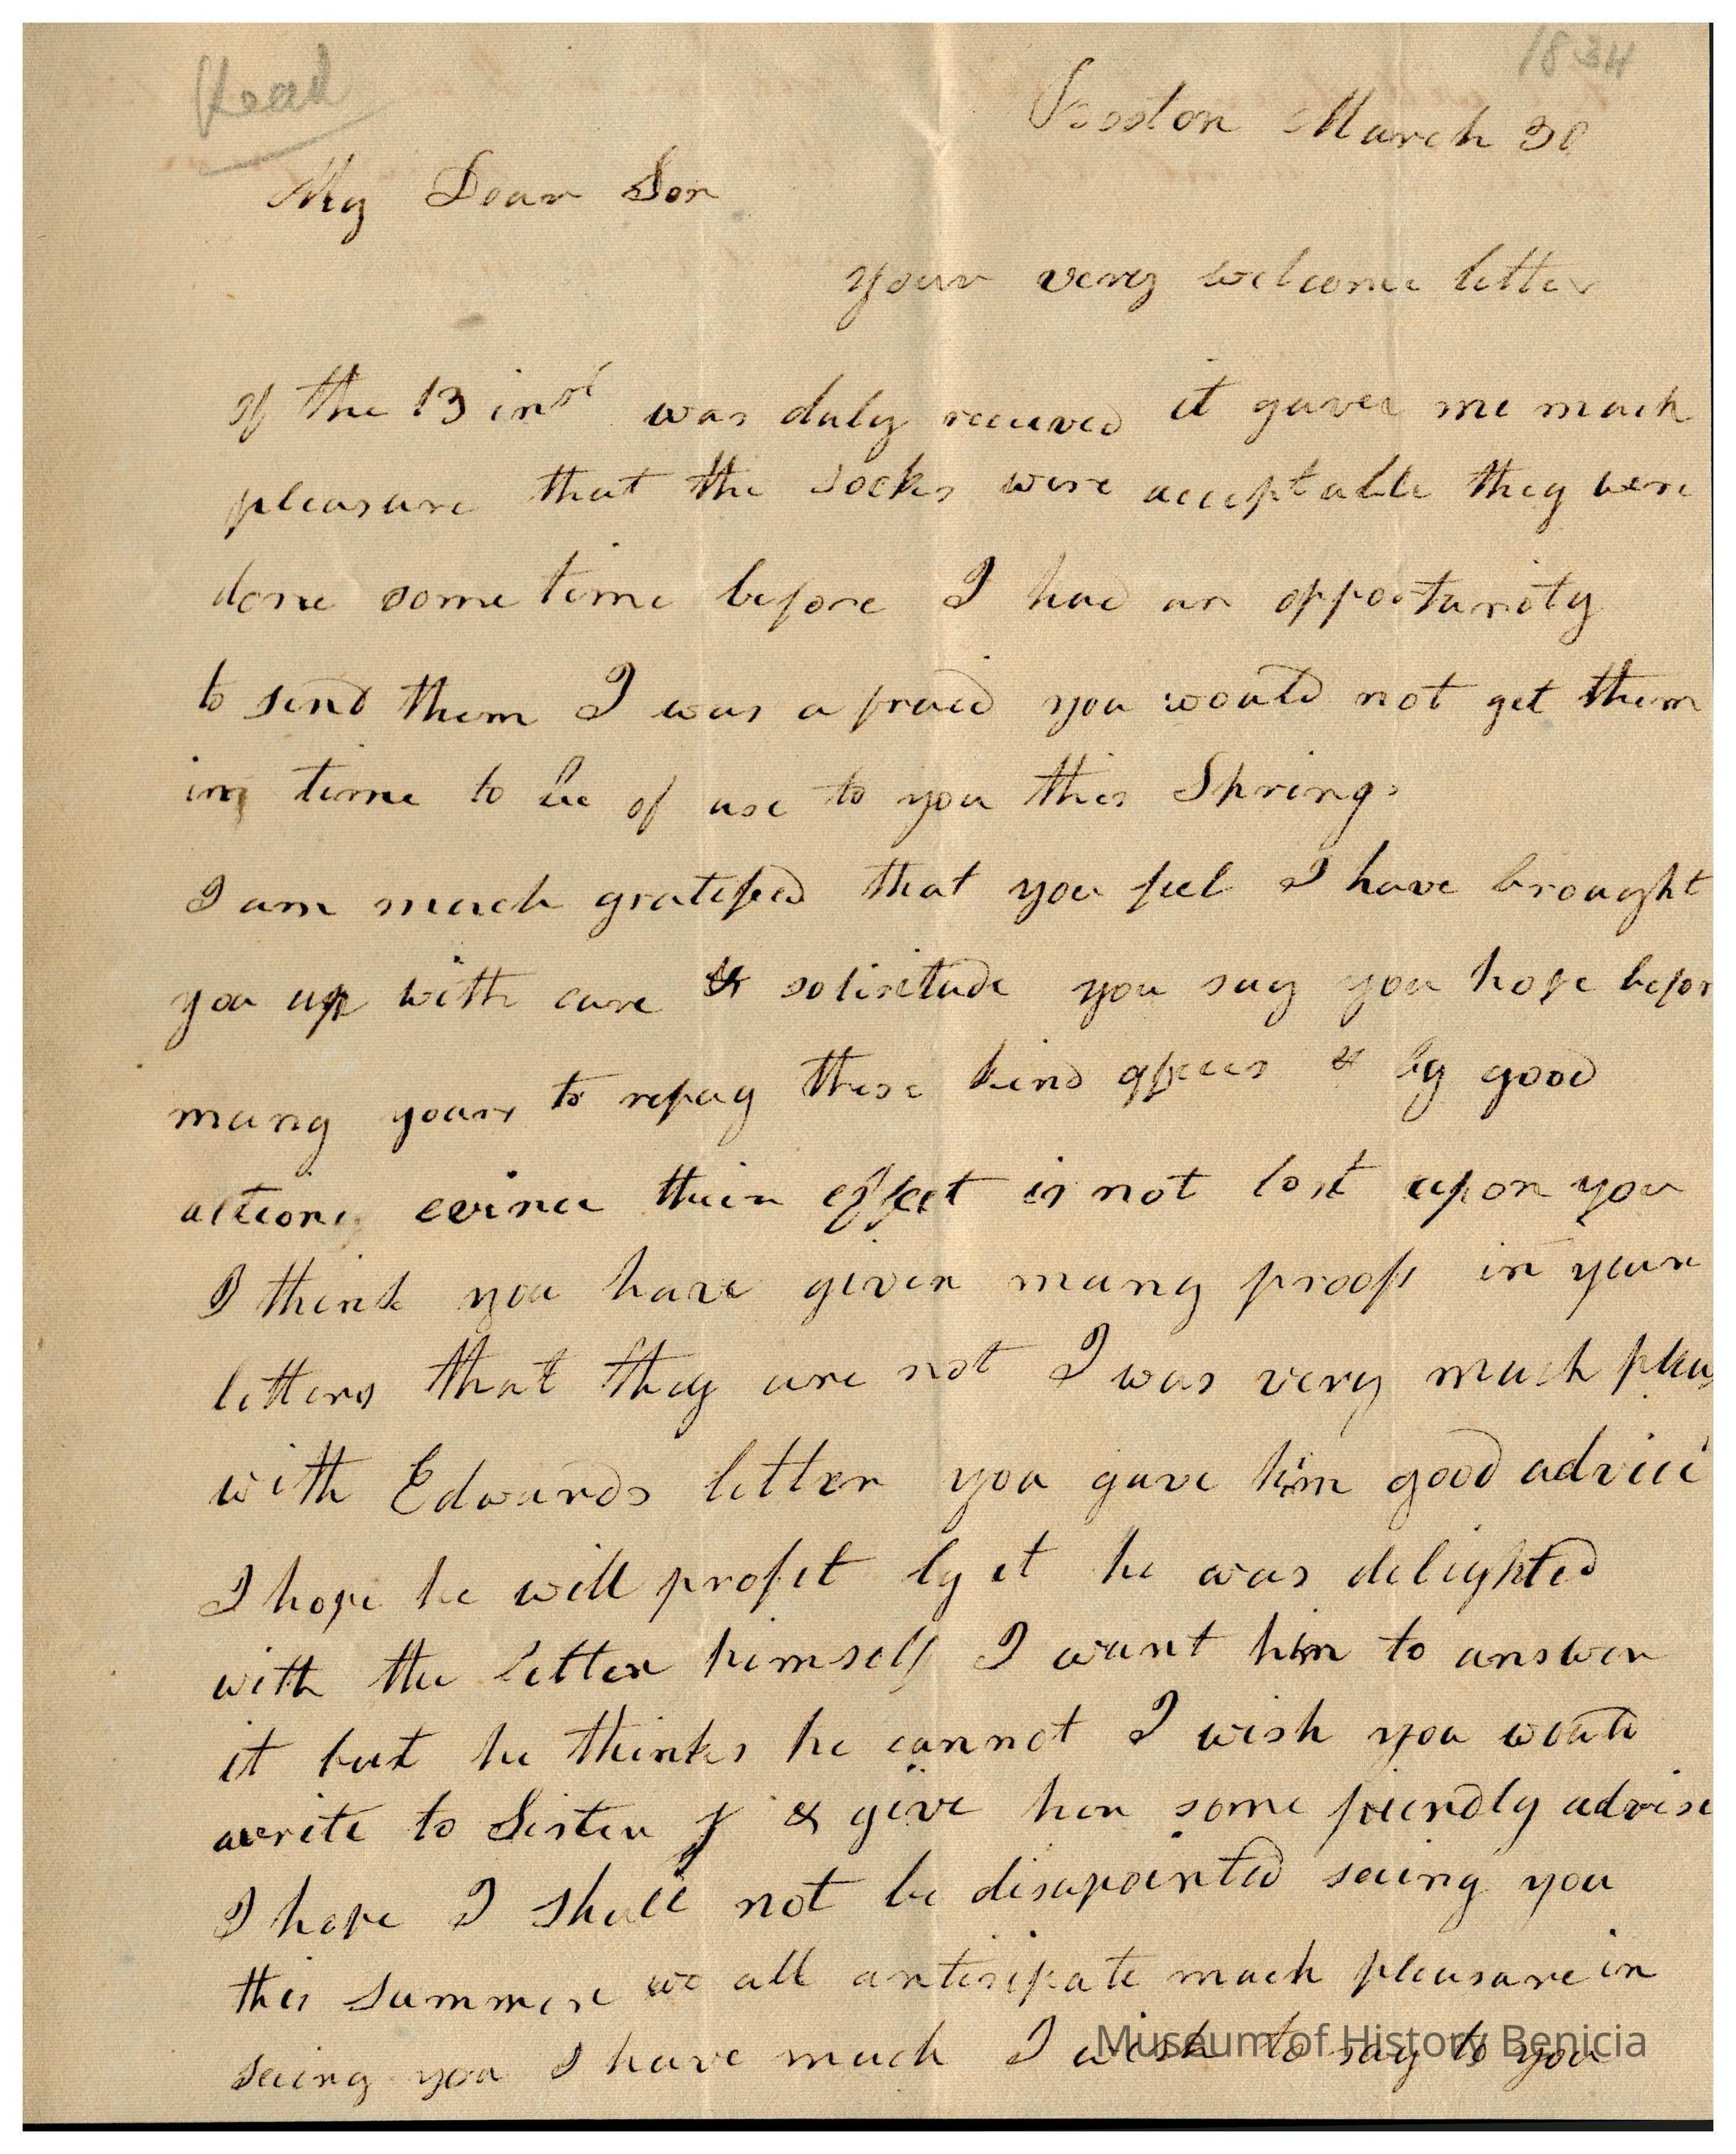 Read
1834
Boston March 30
My Dear Son
your very welcome letter
of the 13 inst was duly received it gave me much
pleasure that the socks were acceptable they were
done some time before I had an opportunity
to send them I was afraid you would not get them
in time to be of use to you this Spring
I am much gratified that you feel I have brought
you up with care & solisitude you say you hope befor
many years to repay these kind offices & by good
actions evince their effect is not lost upon you
I think you have given many proofs in your
letters that they are not I was very much pleas
with Edwards letter you gave him good advice
I hope he will profit by it he was delighted
with the letter himself I want him to answer
it but he thinks he cannot I wish you would
write to Sister J & give her some friendly advise
I hope I shall not be disapointed seeing you
this summer we all antisipate much pleasure in
seeing you I have much I wish to say to you
Museum of History Benicia